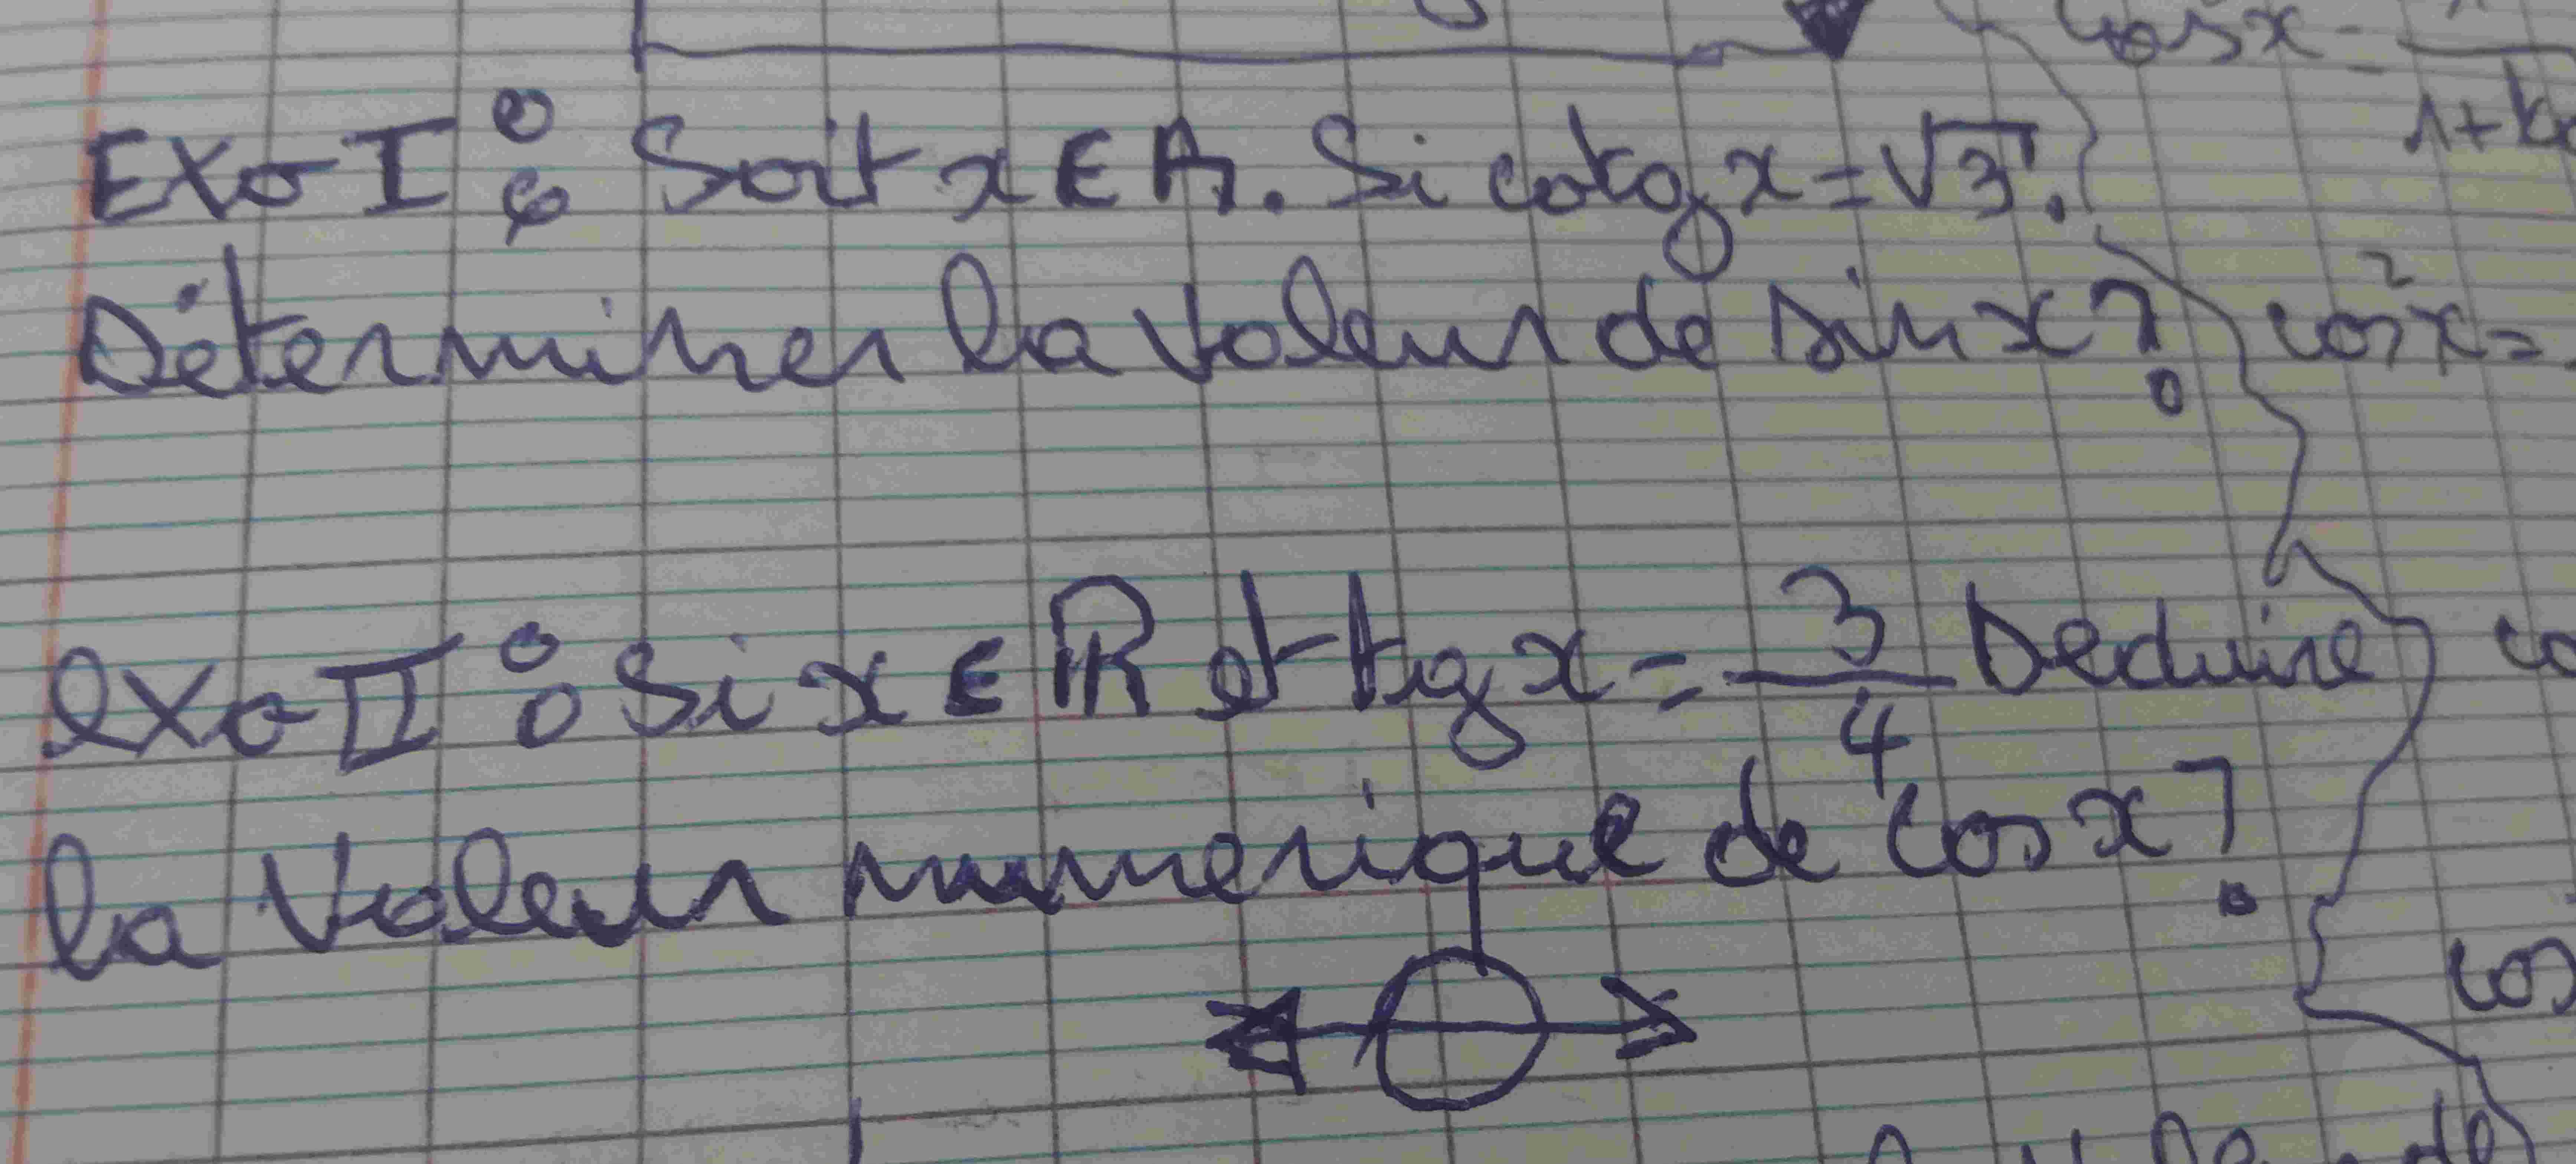 cos²x =
1+
Exo I : Soit x ∈ R. Si cotg x = √3.
Déterminer la valeur de sin x ?
cos²x =
exo II : Si x ∈ R et tg x = 3/4 Deduire
la valeur numerique de cos x ?
cos